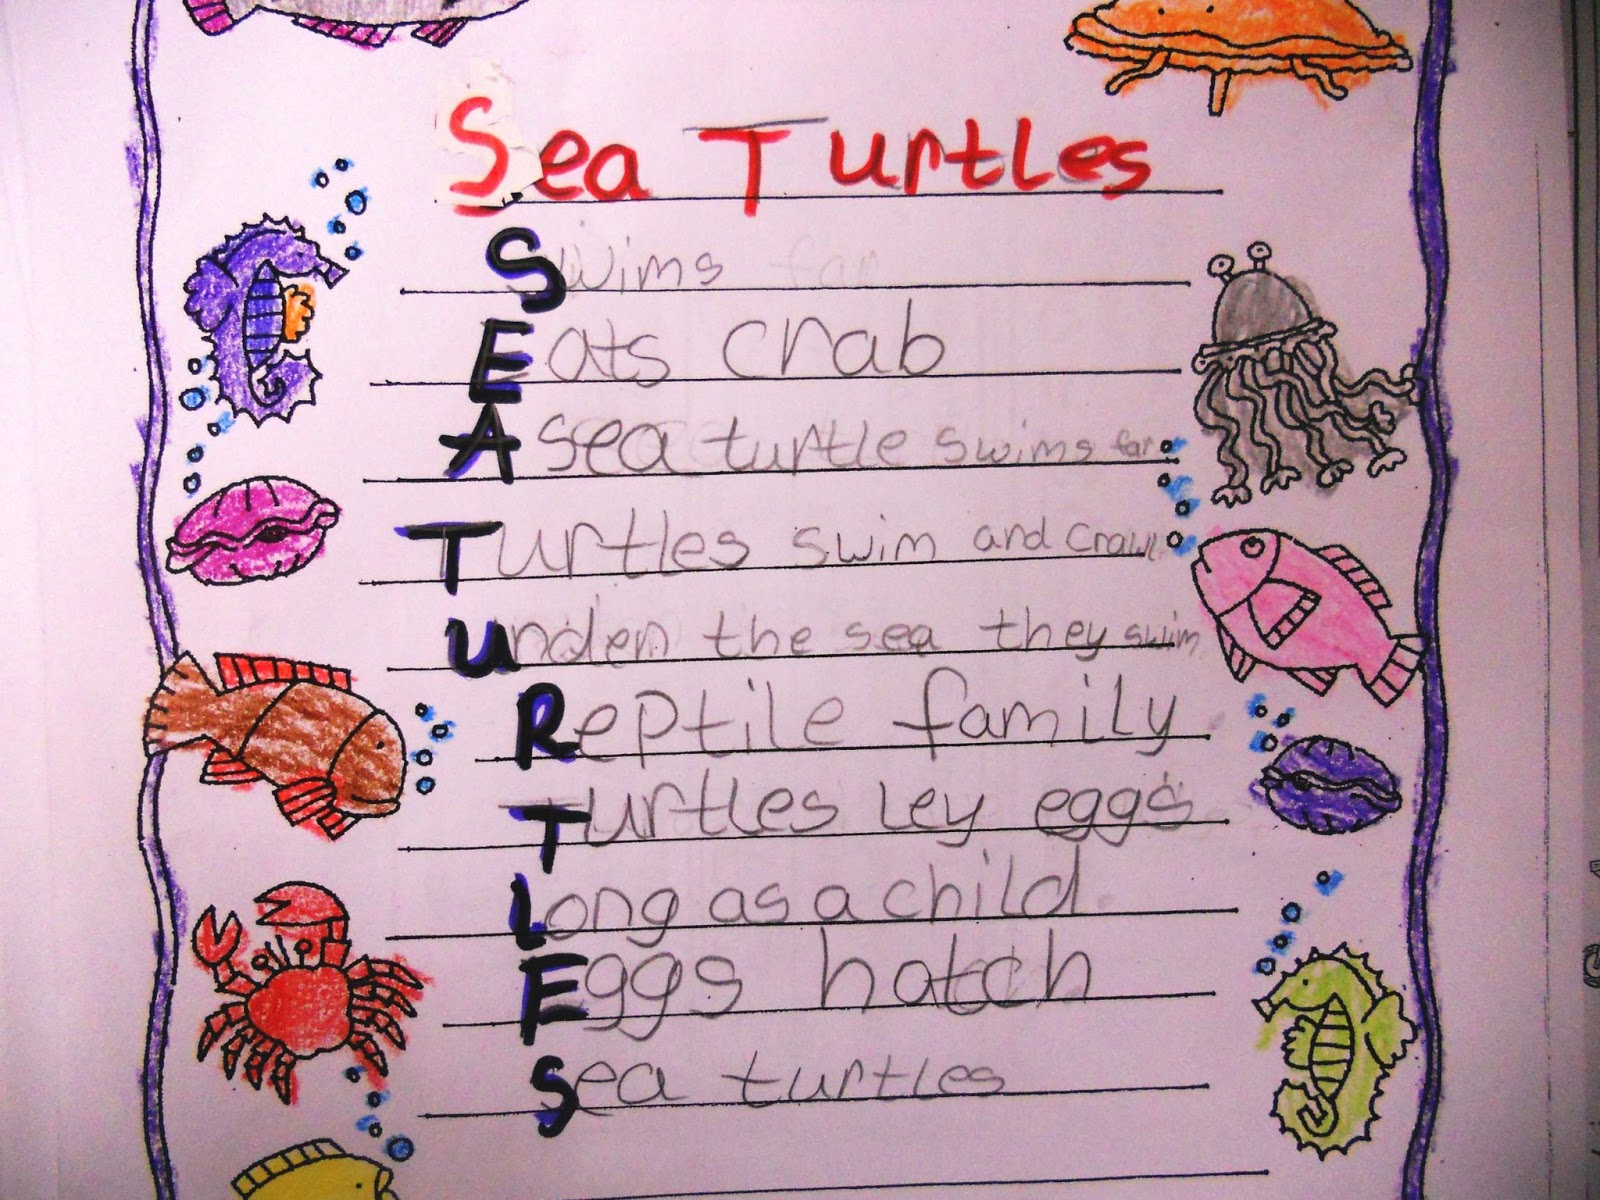 Sea Turtles
Swims far
Eats crab
A sea turtle swims far
Turtles swim and crawl
Under the sea they swim
Reptile family
Turtles ley eggs
Long as a child.
Eggs hatch
Sea turtles